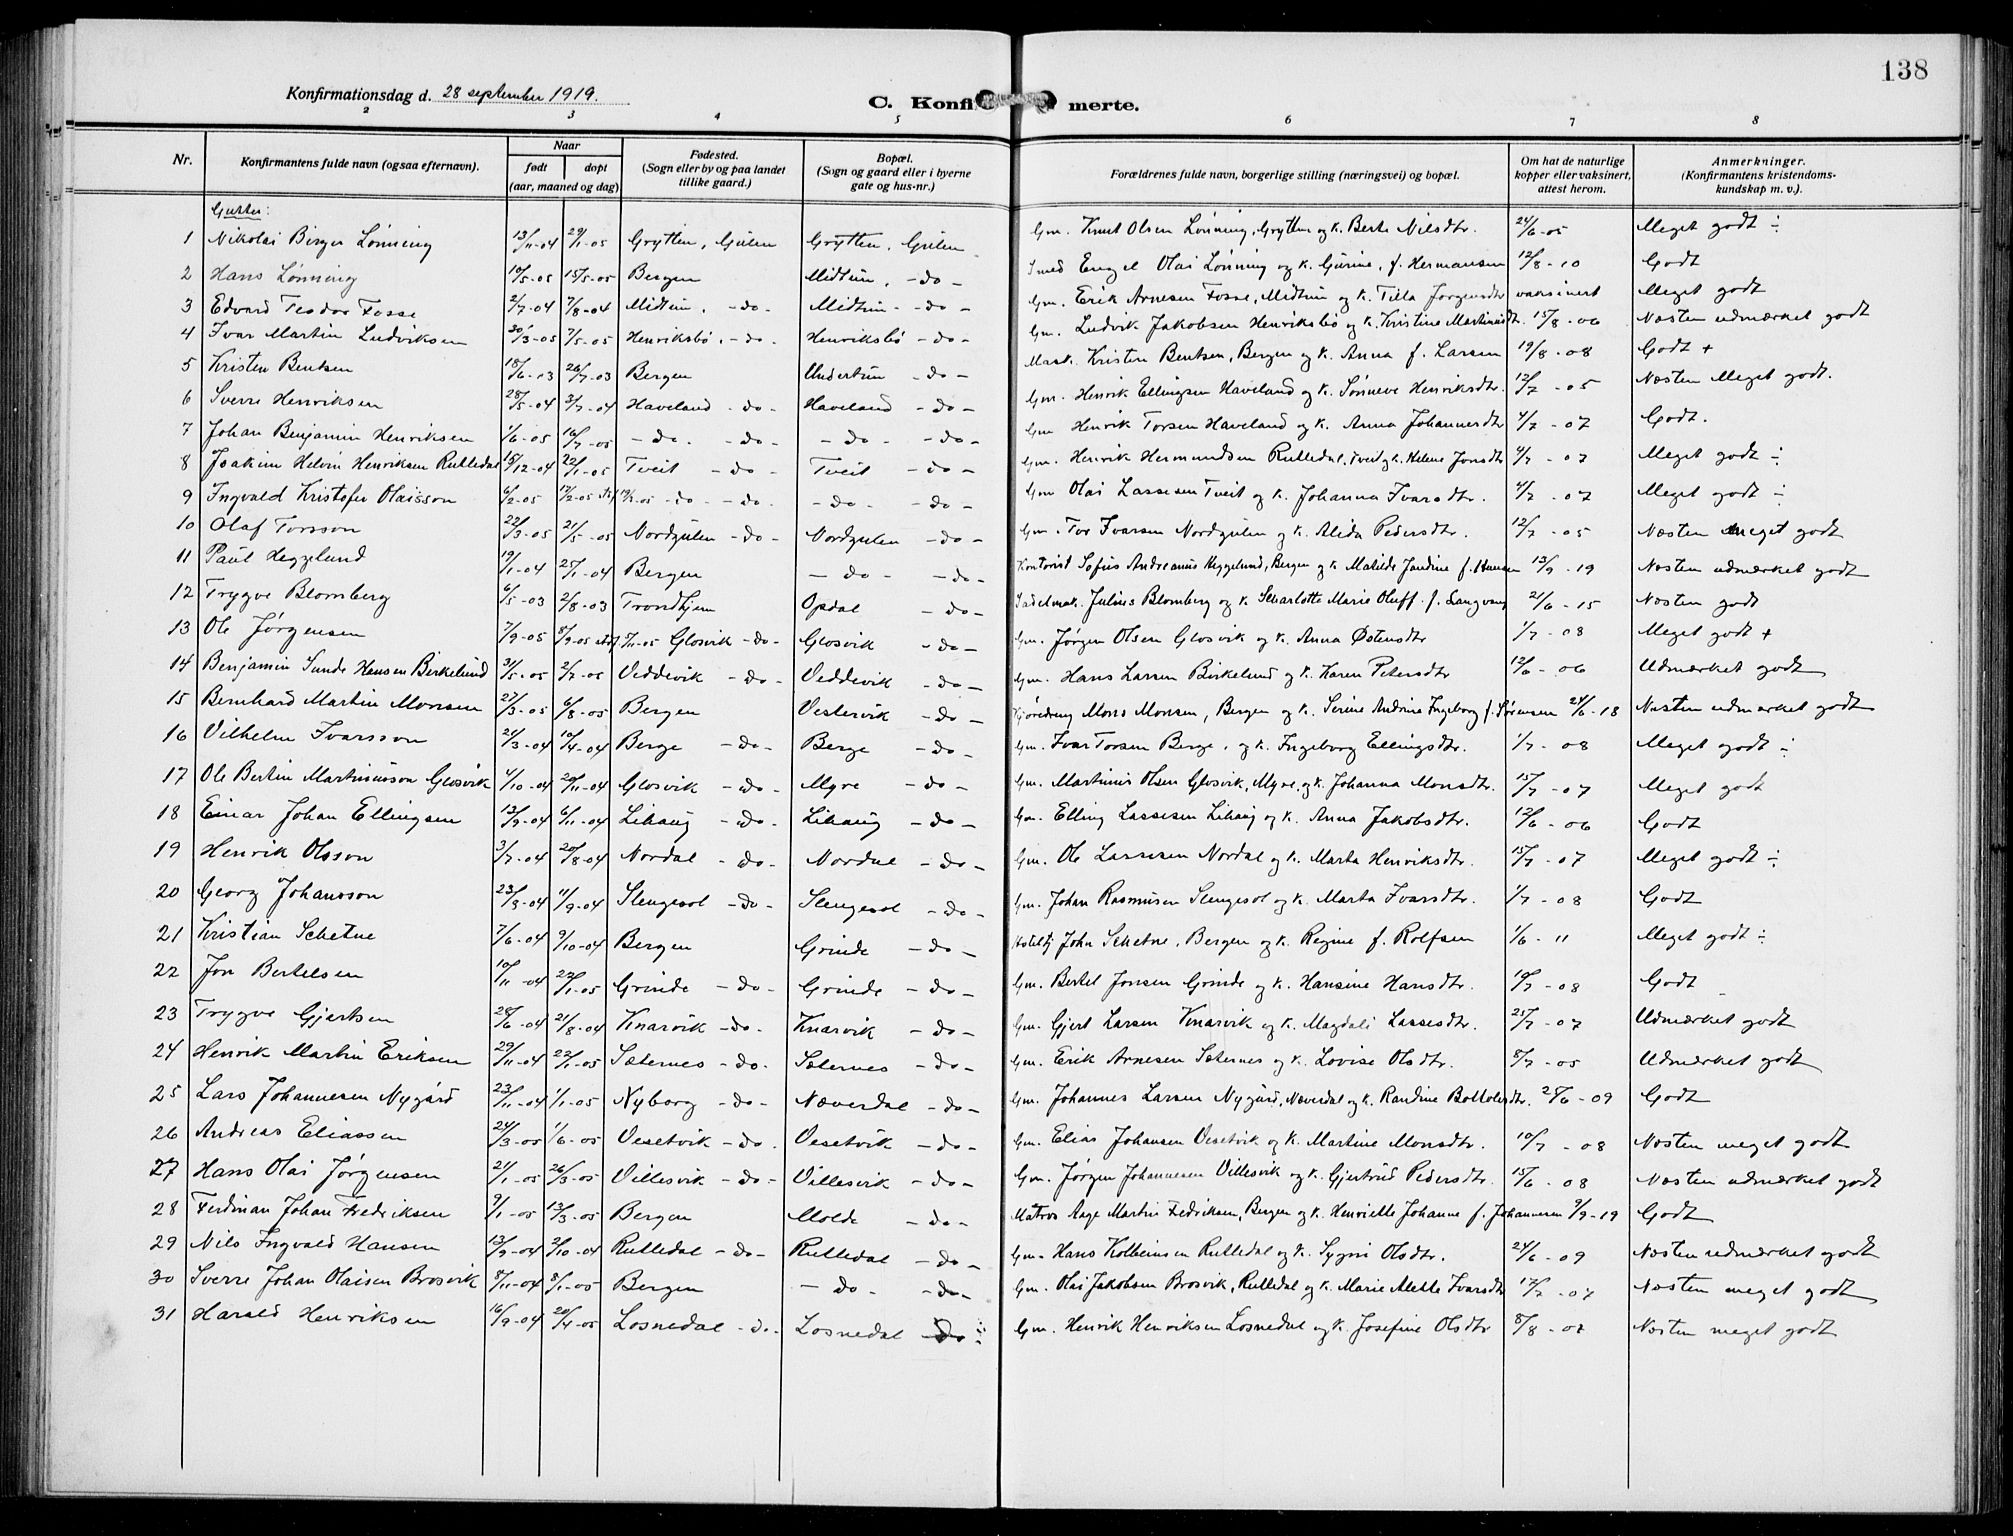 138
Konfirmationsdag d. 28 september 1919.
C. Konfirmerte.
2 3 4 5 6 7 8
Nr. Konfirmantens fulde navn (ogsaa efternavn). Naar født døpt (aar, maaned og dag) Fødested. (Sogn eller by og paa landet tillike gaard.) Bopæl. (Sogn og gaard eller i byerne gate og hus-nr.) Forældrenes fulde navn, borgerlige stilling (næringsvei) og bopæl. Om hat de naturlige kopper eller vaksinert, attest herom. Anmerkninger. (Konfirmantens kristendomskundskap m. v.).
Gutter:
1 Nikolai Birger Lønning 13/11-04 29/1-05 Grytten, Gulen Grytten, Gulen Gm. Knut Olsen Lønning, Grytten og k. Berte Nilsdtr. 24/6-05 Meget godt ÷
2 Hans Lønning 10/5-05 15/5-05 Bergen Midtun, -do- Smed Engel Olai Lønning og k. Gurine, f. Hermansen 12/8-10 Godt
3 Edvard Teodor Fosse 2/7-04 7/8-04 Midtun, -do- Midtun -do- Gm. Erik Arnesen Fosse, Midtun og k. Tilla Jørgensdtr vaksinert Meget godt
4 Ivar Martin Ludviksen 30/3-05 7/5-05 Henriksbø, -do- Henriksbø -do- Gm. Ludvik Jakobsen Henriksbø og k. Kristine Martinsdtr. 15/8-06 Næsten udmærket godt
5 Kristen Bentsen 18/6-03 26/7-03 Bergen Undertun -do- Mask. Kristen Bentsen, Bergen og k. Anna f. Larsen 19/8-08 Godt +
6 Sverre Henriksen 28/5-04 3/7-04 Haveland -do- Haveland -do- Gm. Henrik Ellingsen Haveland og k. Sønneve Henriksdtr. 12/7-05 Næsten Meget godt.
7 Johan Benjamin Henriksen 1/6-05 16/7-05 -do- -do- -do- -do- Gm Henrik Torsen Haveland og k. Anna Johannesdtr 4/7-07 Godt.
8 Joakim Helvin Henriksen Rutledal 15/12-04 22/1-05 Tveit -do- Tveit -do- Gm. Henrik Hermundsen Rutledal, Tveit og k. Helene Jonsdtr 4/7-07 Meget godt ÷
9 Ingvald Kristofer Olaisson 6/2-05 17/2-05 -do- -do- -do- -do- Gm Olai Lassesen Tveit og k. Johanna Ivarsdtr. 4/7-07 Meget godt ÷
10 Olaf Torsson 22/3-05 21/5-05 Nordgulen -do- Nordgulen -do- Gm. Tor Ivarsen Nordgulen og k. Alida Pedersdtr. 12/7-05 Næsten meget godt
11 Paul Heggelund 19/1-04 25/1-04 Bergen -do- -do- Kontorist Sofus Andreanus Heggelund, Bergen og k Matilde Jandine f. Hansen 13/9-19 Næsten udmærket godt
12 Trygve Blomberg 6/5-03 2/8-03 Trondhjem Opdal -do- Sadelmak. Julius Blomberg og k. Scharlotte Marie Oluff. f. Langvang 21/6-15 Næsten godt
13 Ole Jørgensen 7/9-05 8/9-05 Glosvik -do- Glosvik -do- Gm. Jørgen Olsen Glosvik og k. Anna Østensdtr 1/7-08 Meget godt +
14 Benjamin Sunde Hansen Birkelund 31/5-05 2/7-05 Veddevik -do- Veddevik -do- Gm. Hans Larsen Birkelund og k. Karen Petersdtr 12/6-06 Udmærket godt
15 Bernhard Martin Monsen 27/3-05 6/8-05 Bergen Vestervik -do- Kjøredreng Mons Monsen, Bergen og k. Serine Andrine Ingeborg f. Sørensen 24/6-18 Næsten udmærket godt
16 Vilhelm Ivarsson 21/3-04 10/4-04 Berge -do- Berge -do- Gm. Ivar Torsen Berge, og k. Ingeborg Ellingsdtr. 1/7-08 Meget godt ÷
17 Ole Bertin Martinusson Glosvik 4/10-04 20/11-04 Glosvik -do- Myre -do- Gm. Martinus Olsen Glosvik, Myre, og k. Johanna Monsdtr. 15/7-07 Meget godt
18 Einar Johan Ellingsen 13/9-04 6/11-04 Lihaug -do- Lihaug -do- Gm. Elling Lassesen Lihaug og k. Anna Jakobsdtr. 12/6-06 Godt
19 Henrik Olsson 3/7-04 20/8-04 Nordal -do- Nordal -do- Gm. Ole Lassesen Nordal og k. Marta Henriksdtr. 15/7-07 Meget godt ÷
20 Georg Johansson 23/8-04 11/9-04 Slengesol -do- Slengesol -do- Gm. Johan Rasmusen Slengesol og k. Marta Ivarsdtr. 1/7-08 Godt
21 Kristian Schetne 7/6-04 9/10-04 Bergen Grinde -do- Hoteltj John Schetne, Bergen og k. Regine f. Rolfsen 1/6-11 Meget godt ÷
22 Jon Bertelsen 10/11-04 22/1-05 Grinde -do- Grinde -do- Gm. Bertel Jonsen Grinde og k. Hansine Hansdtr. 10/7-08 Godt
23 Trygve Gjertsen 28/6-04 21/8-04 Knarvik -do- Knarvik -do- Gm. Gjert Larsen Knarvik og k. Magdali Lassesdtr. 25/7-07 Udmærket godt
24 Henrik Martin Eriksen 29/11-04 22/1-05 Sæternes -do- Sæternes -do- Gm. Erik Arnesen Sæternes og k. Lovise Olsdtr. 8/7-05 Udmærket godt
25 Lars Johannesen Nygård 23/11-04 1/1-05 Nyborg -do- Næverdal -do- Gm. Johannes Larsen Nygård, Næverdal og k. Randine Boltolvsdtr. 25/6-09 Godt
26 Andreas Eliassen 24/3-05 1/6-05 Vesetvik -do- Vesetvik -do- Gm. Elias Johansen Vesetvik og k. Martine Monsdtr. 10/7-08 Næsten meget godt
27 Hans Olai Jørgensen 21/1-05 26/3-05 Villesvik -do- Villesvik -do- Gm. Jørgen Johannesen Villesvik og k. Gjertrud Pedersdtr. 15/6-08 Næsten udmærket godt
28 Ferdinan Johan Fredriksen 9/1-05 12/3-05 Bergen Molde -do- Matros Aage Martin Fedriksen, Bergen og k. Henriette Johanne f. Johannesen 9/9-19 Godt
29 Nils Ingvald Hansen 13/9-04 2/10-04 Rutledal -do- Rutledal -do- Gm. Hans Kolbeinsen Rutledal og k. Sygni Olsdtr. 24/6-09 Næsten udmærket godt
30 Sverre Johan Olaisen Brosvik 8/11-04 8/1-05 Bergen -do- -do- Gm. Olai Jakobsen Brosvik, Rutledal og k. Marie Alette Ivarsdtr 17/7-07 Næsten meget godt
31 Harald Henriksen 16/9-04 20/4-05 Losnedal -do- Losnedal -do- Gm. Henrik Henriksen Losnedal og k. Josefine Olsdtr 8/8-07 Næsten meget godt